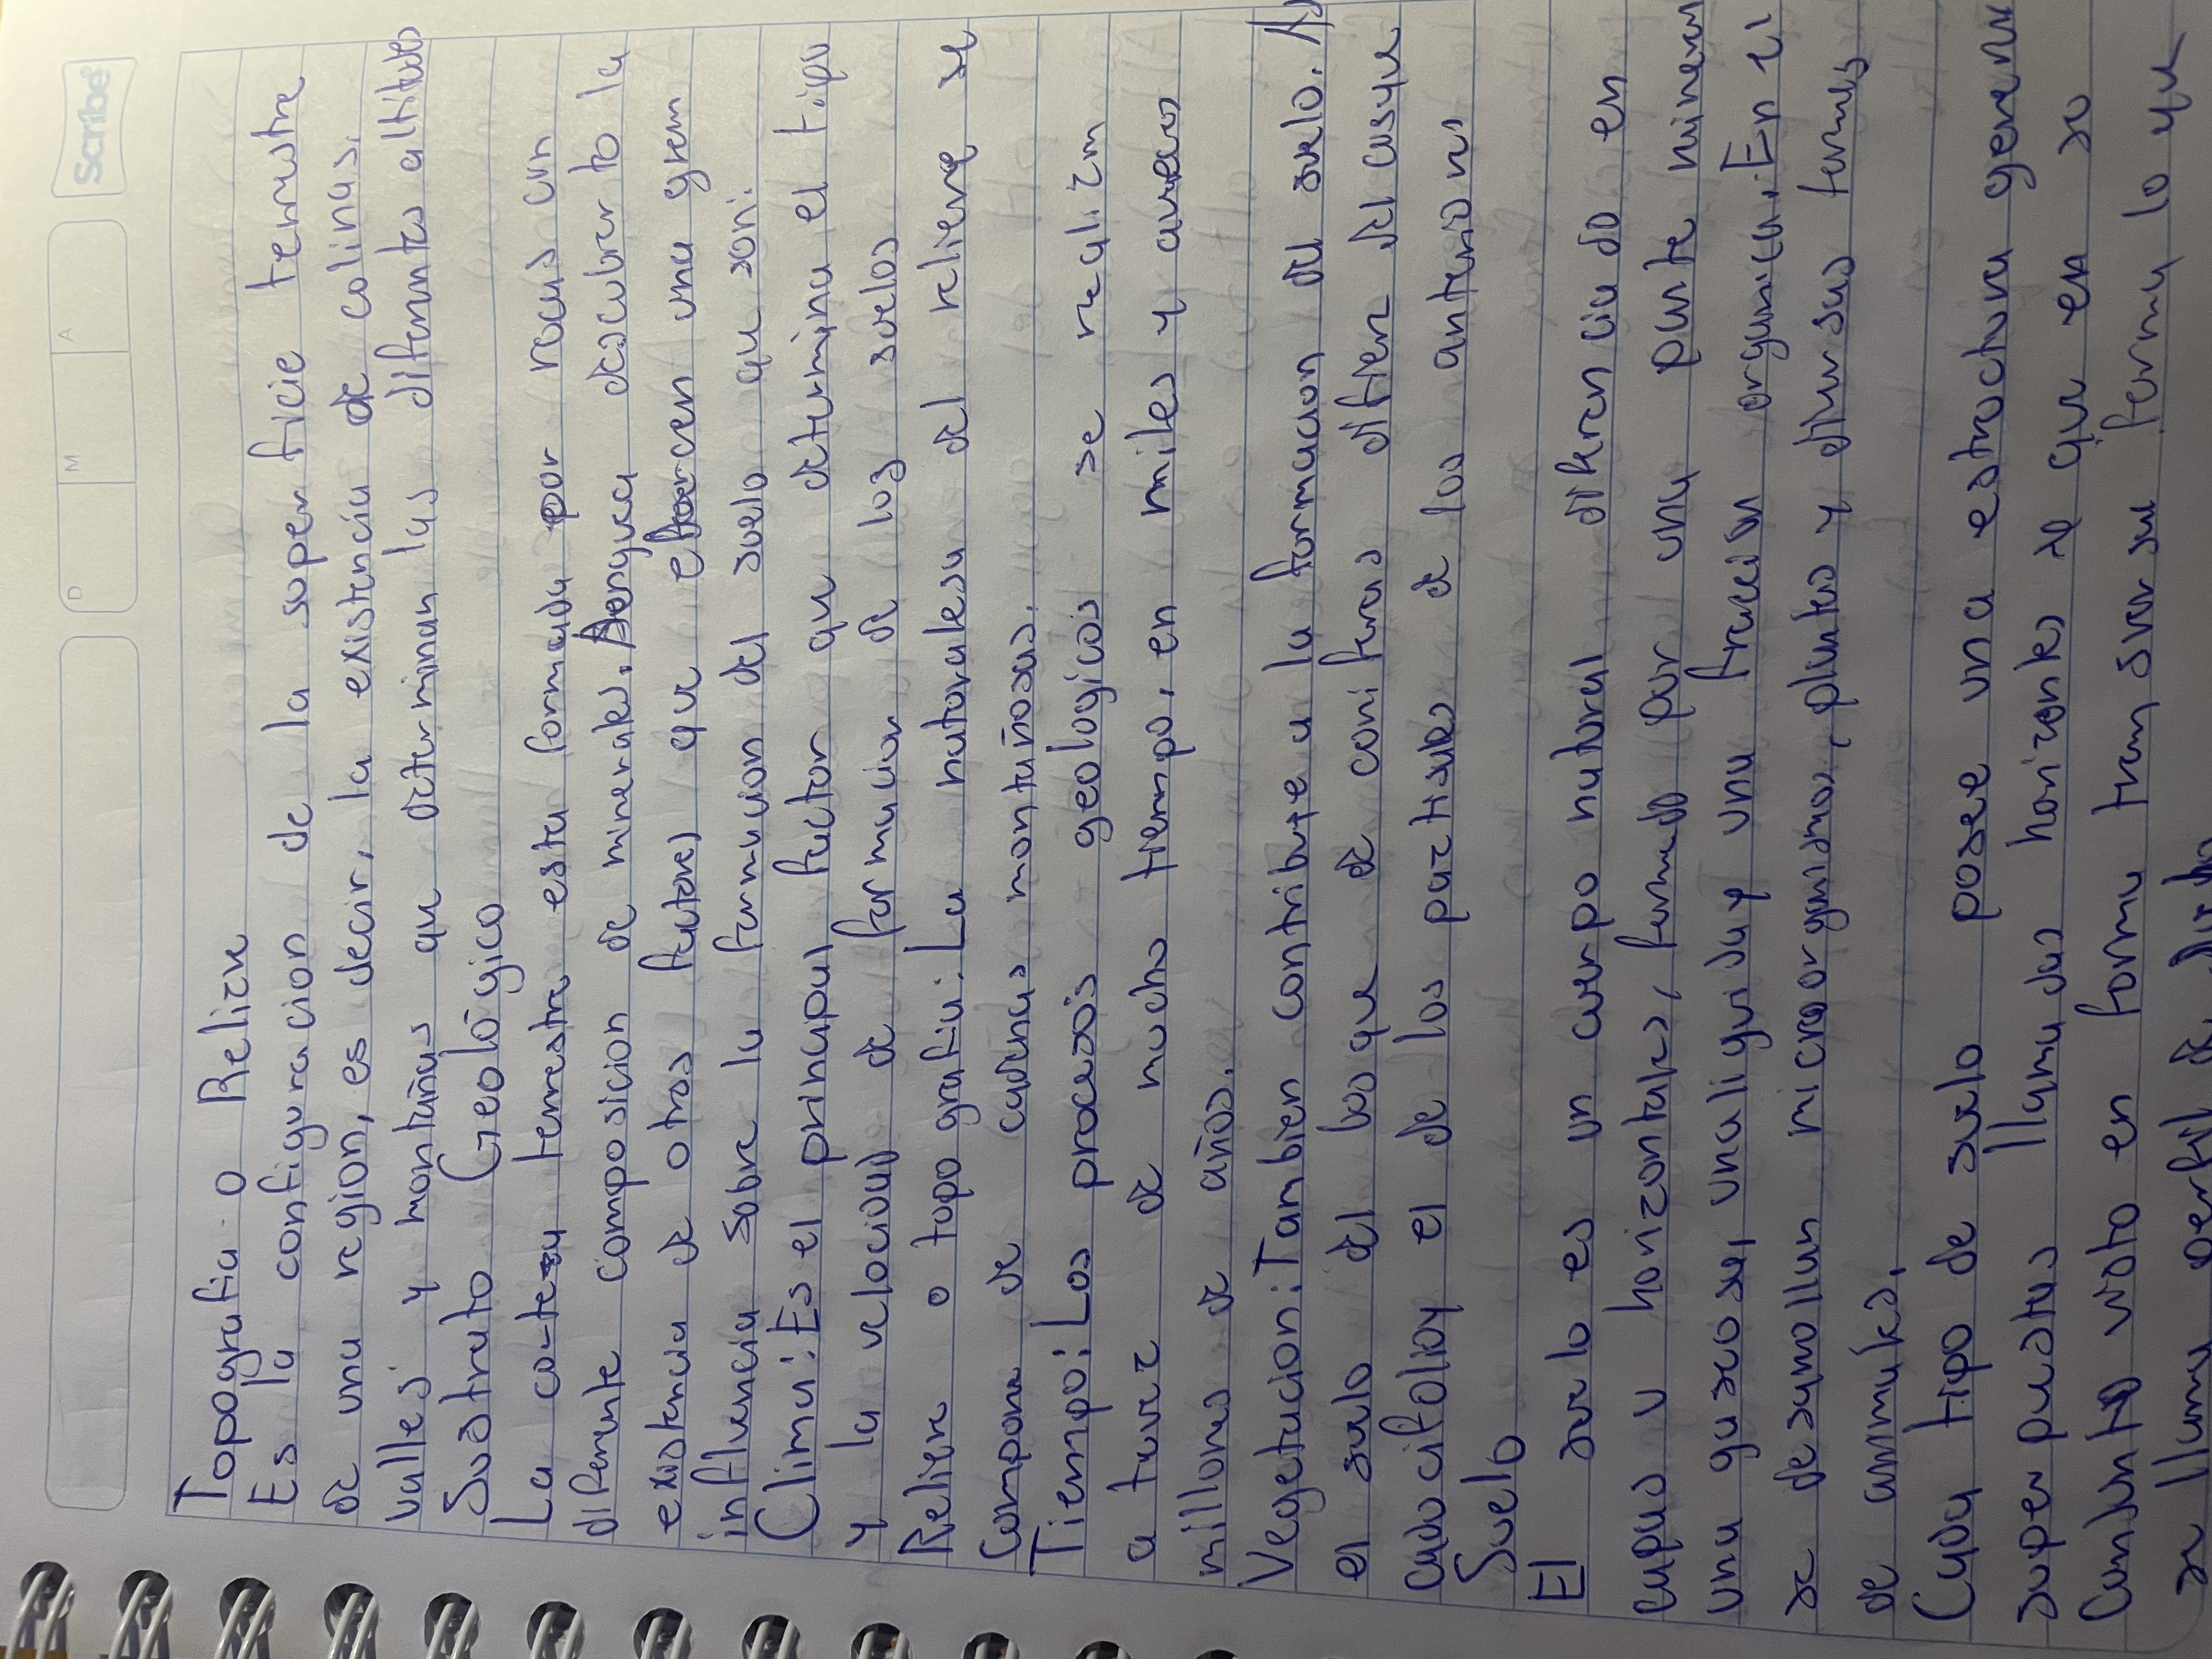 Scribe
D M A
Topografia o Relieve
Es la configuracion de la superficie terrestre
de una region, es decir, la existencia de colinas,
valles y montañas que determinan las diferentes altitudes
Sustrato Geológico
La corteza terrestre esta formada por rocas con
diferente composicion de minerales. Aunque descubrer to la
existencia de otros factores que ejercen una gran
influencia sobre la formacion del suelo que son:
Clima: Es el principal factor que determina el tipo
y la velocidad de formacion de los suelos
Relieve o topografia: La naturalesa del relieve se
compone de cadenas montañosas.
Tiempo: Los procesos geologicos se realizan
a travez de mucho tiempo, en miles y aveces
millones de años.
Vegetacion: Tambien contribuye a la formacion del suelo. A
el suelo del bosque de coniferas difiere del bosque
caducifolio y el de los pactisales de los anteriores
Suelo
El suelo es un cuerpo natural diferenciado en
capas u horizontales, formado por una parte mineral
una gaseosa, una liquida y una fraccion organica. En el
se desarrollan microorganismos, plantas y diversas formas
de animales.
Cada tipo de suelo posee una estructura genera
super puestas llamadas horizontes se que en su
Conjunto visto en forma transversal forma lo que
se llama perfil de